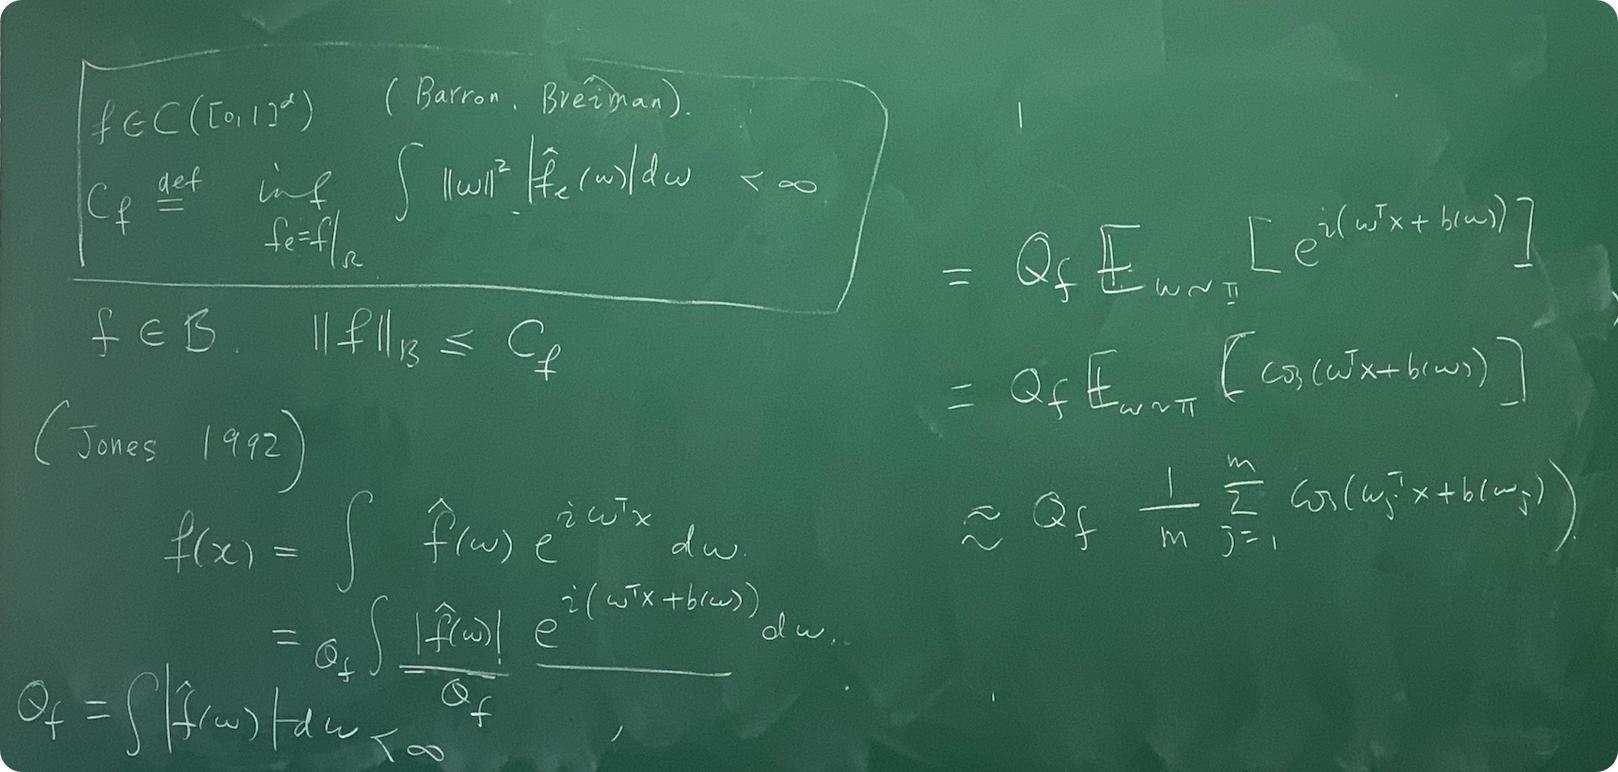 f ∈ C([0,1]^d) (Barron, Breiman).
C_f def= inf_{f_e = f|_Ω} ∫ ||ω||² |f̂_e(ω)| dω < ∞
f ∈ B. ||f||_B ≤ C_f
(Jones 1992)
f(x) = ∫ f̂(ω) e^{iω^T x} dω.
= Q_f ∫ |f̂(ω)| / Q_f e^{i(ω^T x + b(ω))} dω.
Q_f = ∫ |f̂(ω)| dω < ∞
= Q_f E_{ω∼π} [e^{i(ω^T x + b(ω))}]
= Q_f E_{ω∼π} [cos(ω^T x + b(ω))]
≈ Q_f 1/m Σ_{j=1}^m cos(ω_j^T x + b(ω_j))